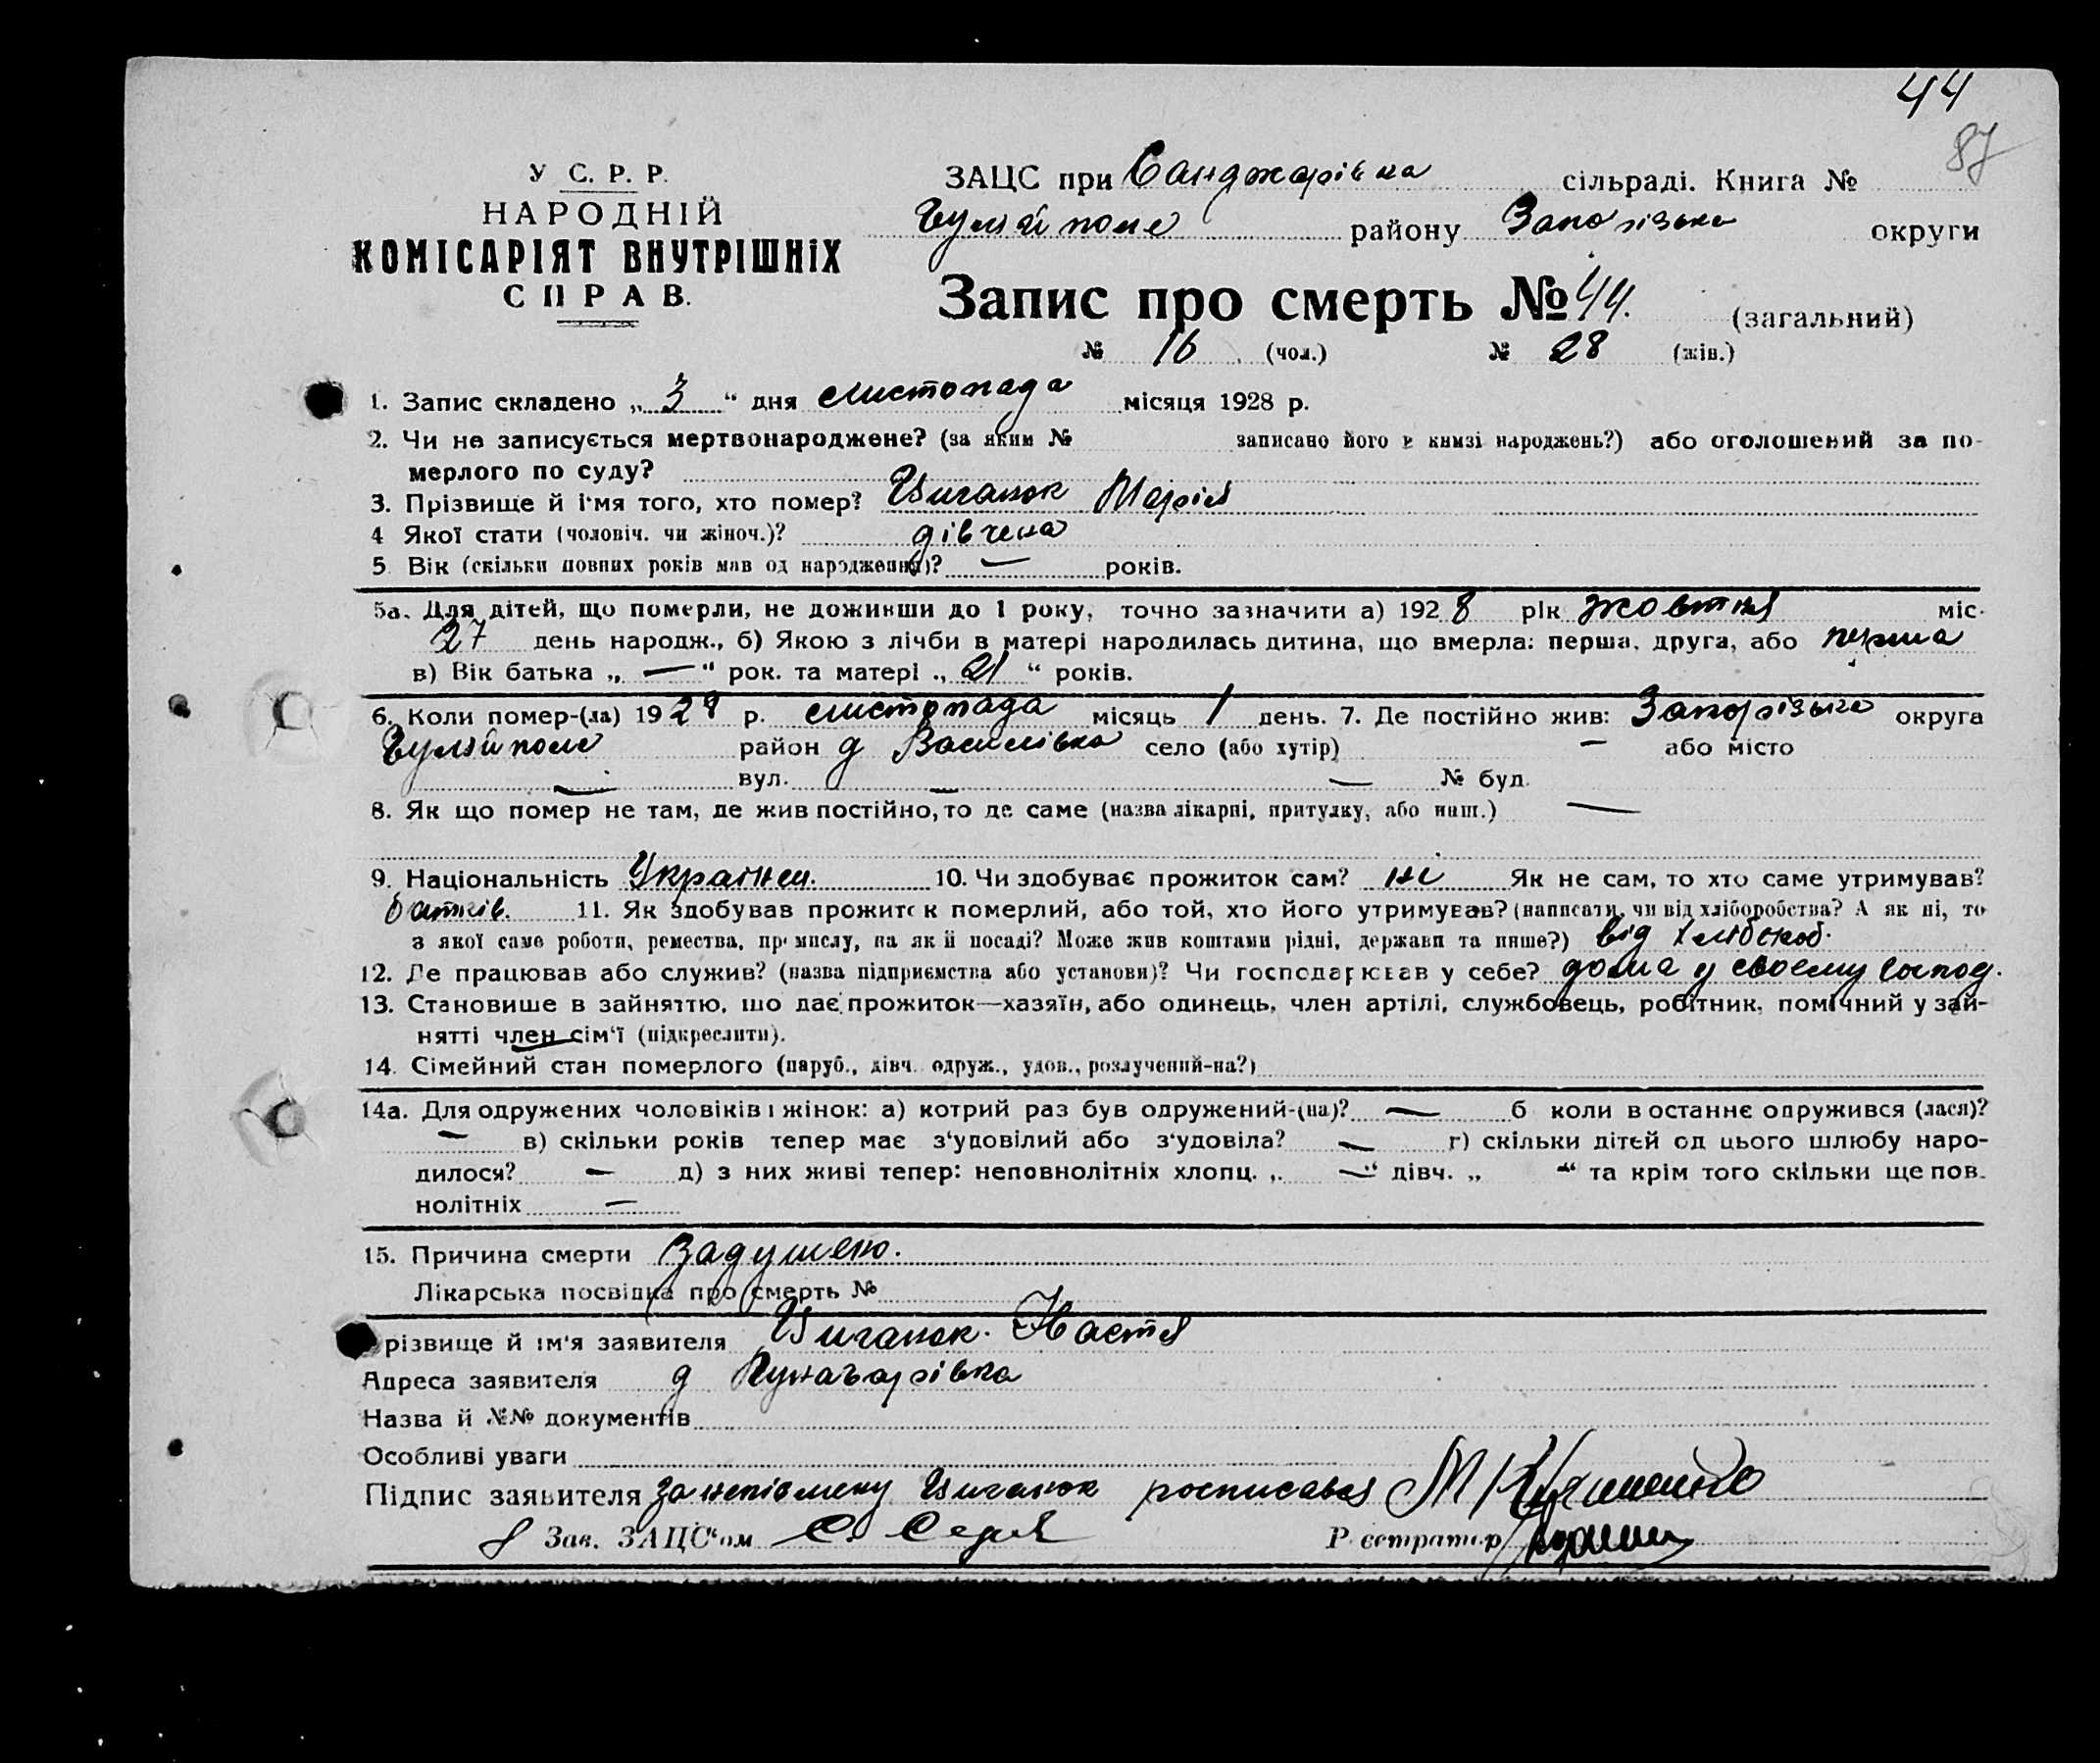 44
87
У С. Р. Р.
НАРОДНІЙ
КОМІСАРІЯТ ВНУТРІШНІХ
СПРАВ.
ЗАЦС при Санджарівна сільраді. Книга №
Гуляй поле району Запорізька округи
Запис про смерть № 44. (загальний)
№ 16 (чол.) № 28 (жін.)
1. Запис складено „ 3 “ дня листопада місяця 1928 р.
2. Чи не записується мертвонароджене? (за яким № записано його в книзі народжень?) або оголошений за по-
мерлого по суду?
3. Прізвище й ім'я того, хто помер? Циганок Марія
4 Якої стати (чоловіч. чи жіноч.)? дівчена
5. Вік (скільки повних років мав од народження)? — років.
5а. Для дітей, що померли, не доживши до 1 року, точно зазначити а) 192 8 рік жовтня міс.
27 день народж., б) Якою з лічби в матері народилась дитина, що вмерла: перша, друга, або перша
в) Вік батька „ — “ рок. та матері „ 21 “ років.
6. Коли помер-(ла) 19 28 р. листопада місяць 1 день. 7. Де постійно жив: Запорізька округа
Гуляй поле район д Василівка село (або хутір) — або місто
— вул. — — № буд.
8. Як що помер не там, де жив постійно, то де саме (назва лікарні, притулку, або инш.) —
9. Національність Українка. 10. Чи здобуває прожиток сам? ні Як не сам, то хто саме утримував?
батків. 11. Як здобував прожиток померлий, або той, хто його утримував? (написати, чи від хліборобства? А як ні, то
з якої саме роботи, ремества, промислу, на якій посаді? Може жив коштами рідні, держави та инше?) від
12. Де працював або служив? (назва підприємства або установи)? Чи господарював у себе? дома у своєму господ.
13. Становище в зайняттю, що дає прожиток—хазяїн, або одинець, член артілі, службовець, робітник, помічний у зай-
нятті член сім'ї (підкреслити).
14. Сімейний стан померлого (паруб., дівч. одруж., удов., розлучений-на?)
14а. Для одружених чоловіків і жінок: а) котрий раз був одружений-(на)? — б коли в останнє одружився (лася)?
— в) скільки років тепер має з'удовілий або з'удовіла? — г) скільки дітей од цього шлюбу наро-
дилося? — д) з них живі тепер: неповнолітніх хлопц. „ — “ дівч. „ — “ та крім того скільки ще пов.
нолітніх —
15. Причина смерти Задушено.
Лікарська посвідка про смерть №
різвище й ім'я заявителя Циганок. Настя
Адреса заявителя д
Назва й №№ документів
Особливі уваги
Підпис заявителя Циганок росписався
Зав. ЗАЦС'ом С.
Реєстратор